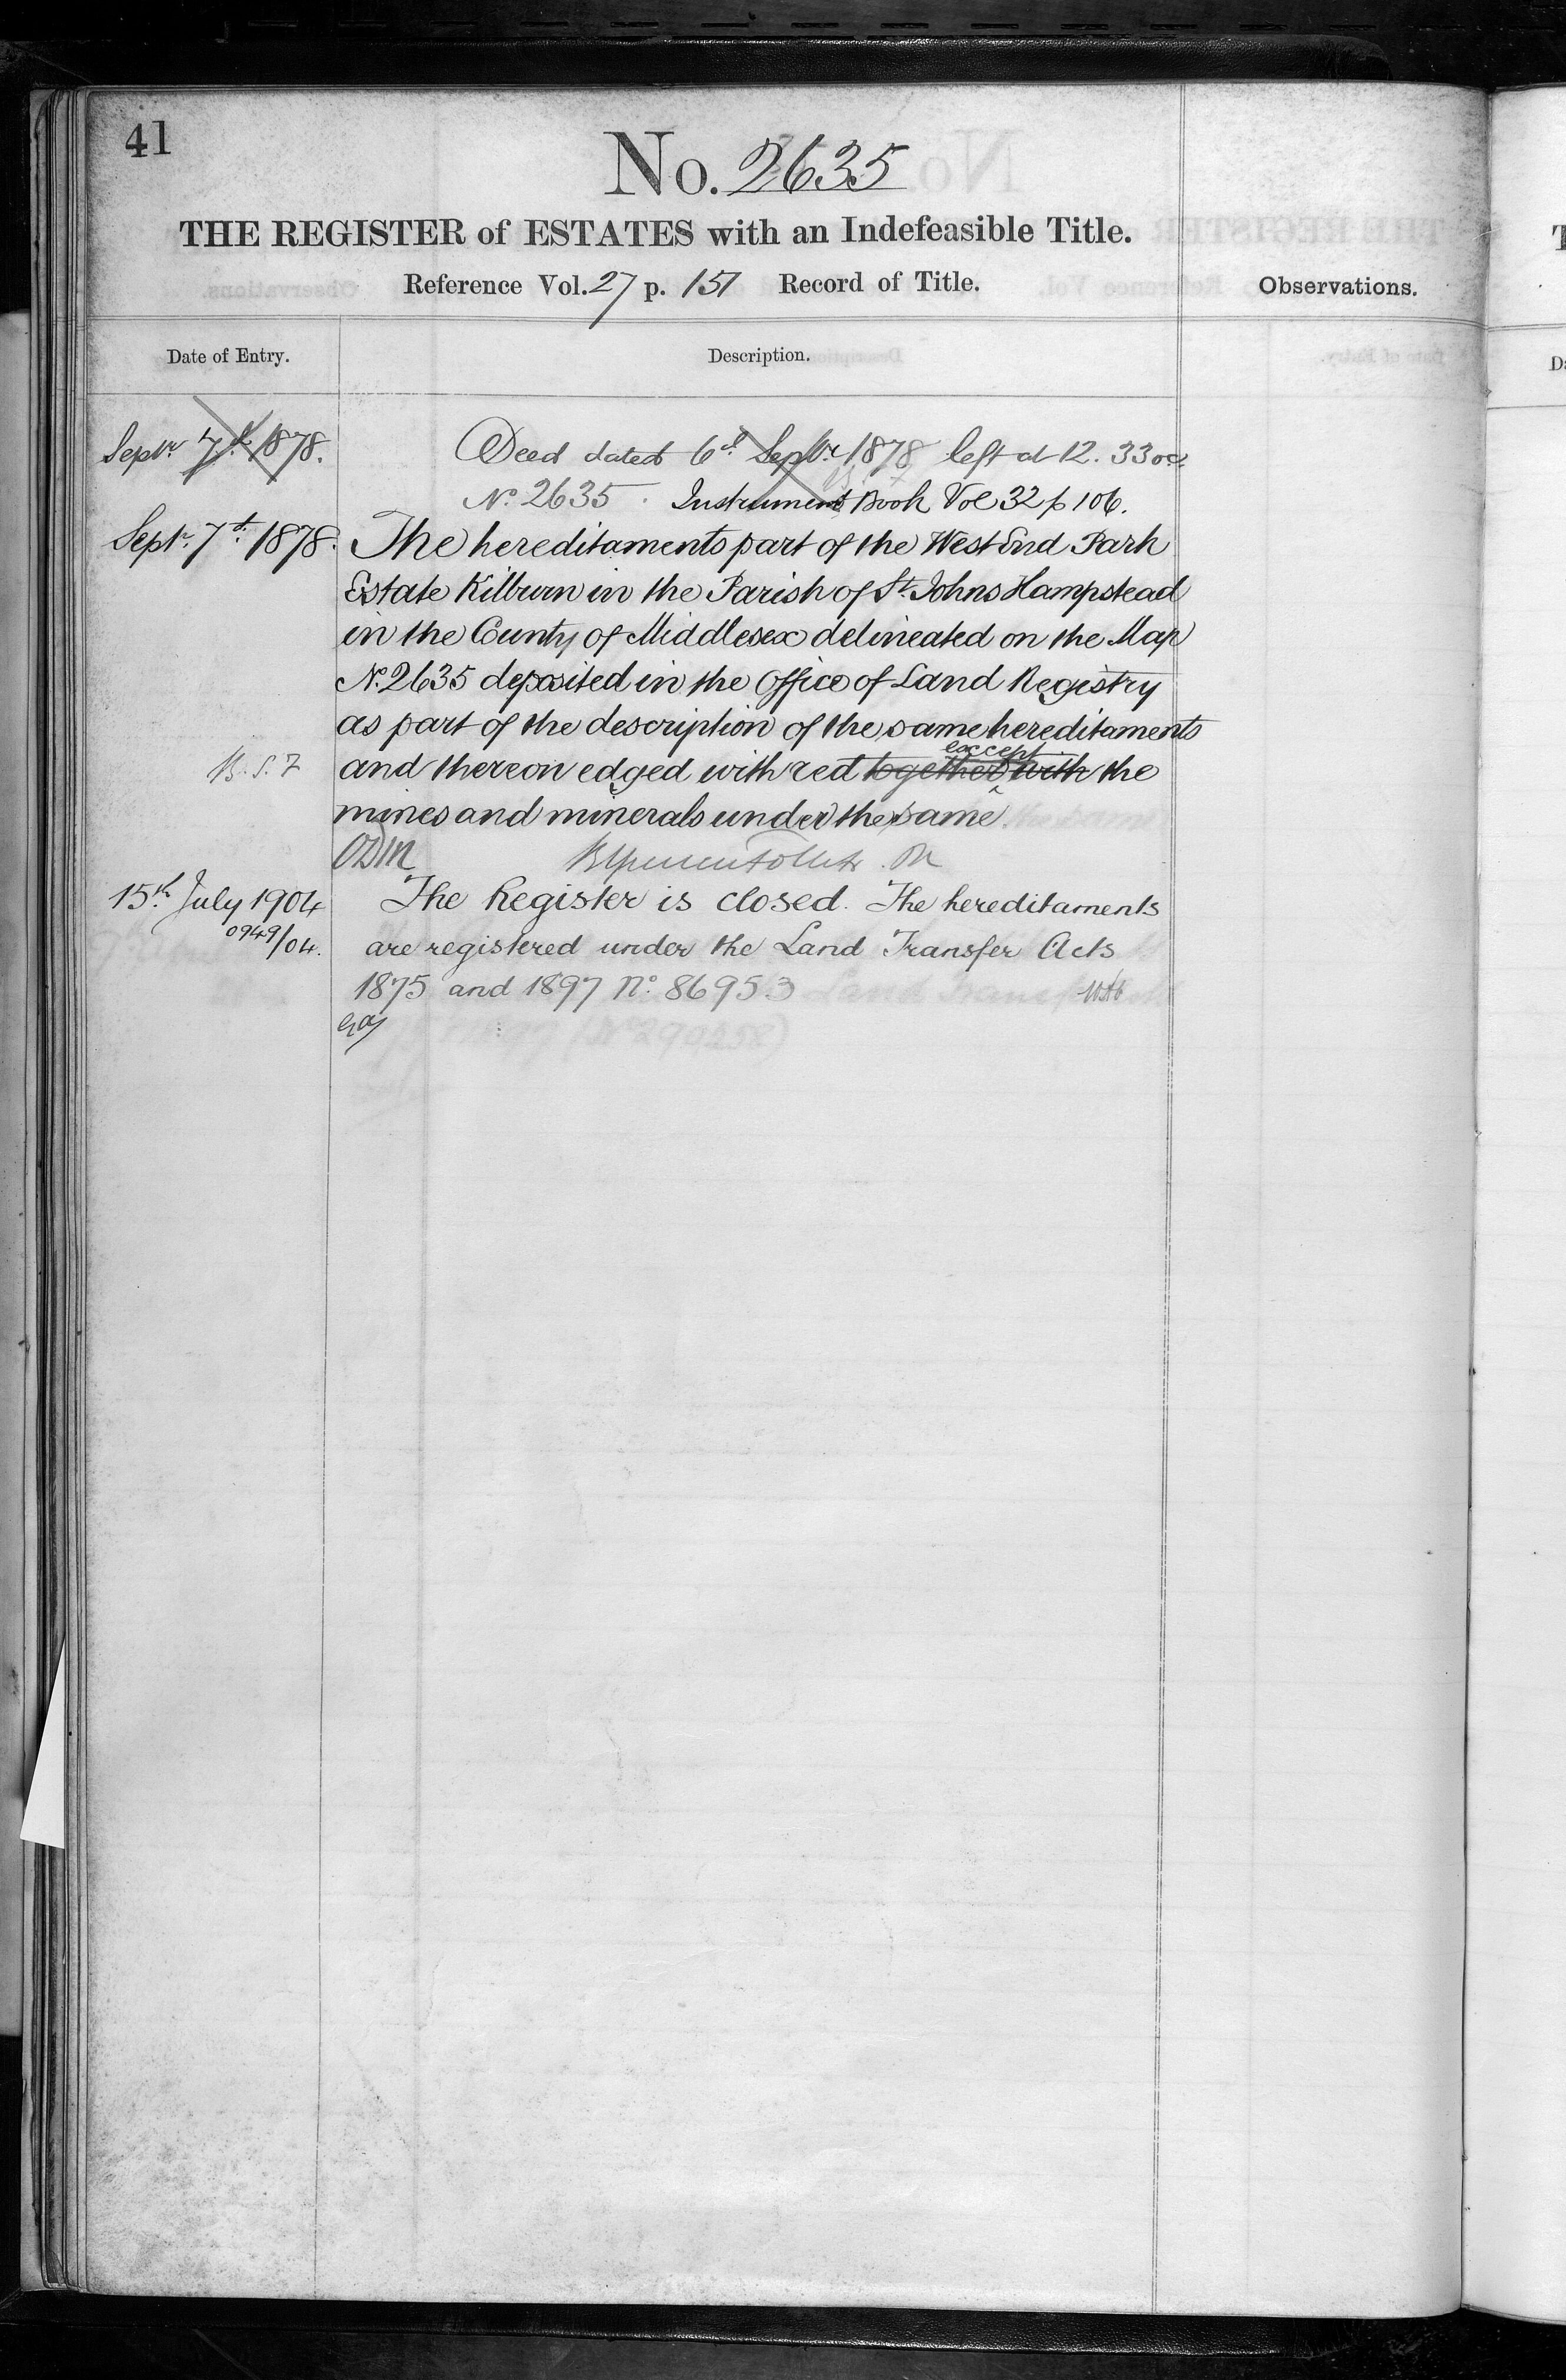 41
No. 2635
THE REGISTER of ESTATES with an Indefeasible Title.
Reference Vol. 27 p. 151 Record of Title.
Observations.
Date of Entry.
Description.
Septr. 7th 1878.
Deed dated 6th Septr. 1878 left at 12.33
No. 2635. Instrument Book Vol 32 p 106.
Septr. 7th 1878.
The hereditaments part of the West End Park
Estate Kilburn in the Parish of St. Johns Hampstead
in the County of Middlesex delineated on the Map
No. 2635 deposited in the Office of Land Registry
as part of the description of the same hereditaments
and thereon edged with red together with except the
mines and minerals under the same
15th July 1904
0949/04.
The Register is closed. The hereditaments
are registered under the Land Transfer Acts
1875 and 1897 No. 86953